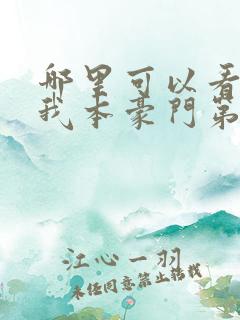 哪里可以看
我本豪门第
江心一羽
未经同意禁止转载